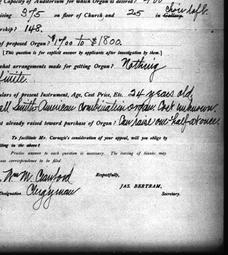 Capacity of Auditorium for which Organ is desired?
rising 375 on floor of Church and 25 choir loft
rship? 148.
of proposed Organ? $1700 to $1800.
(This question is for explicit answer by applicants after investigation by them.)
what arrangements made for getting Organ? Nothing
finite.
ulars of present Instrument, Age, Cost Price, Etc. 24 years old,
all Smith American Combination organ. Cost unknown.
nt already raised toward purchase of Organ? Can raise one-half at once.
To facilitate Mr. Carnegie's consideration of your appeal, will you obligingly
ting in the above?
Precise answer to each question is necessary. The leaving of blanks may
ess correspondence to be filed.
Respectfully,
Wm M. Crawford
JAS. BERTRAM,
Designation. Clergyman Secretary.